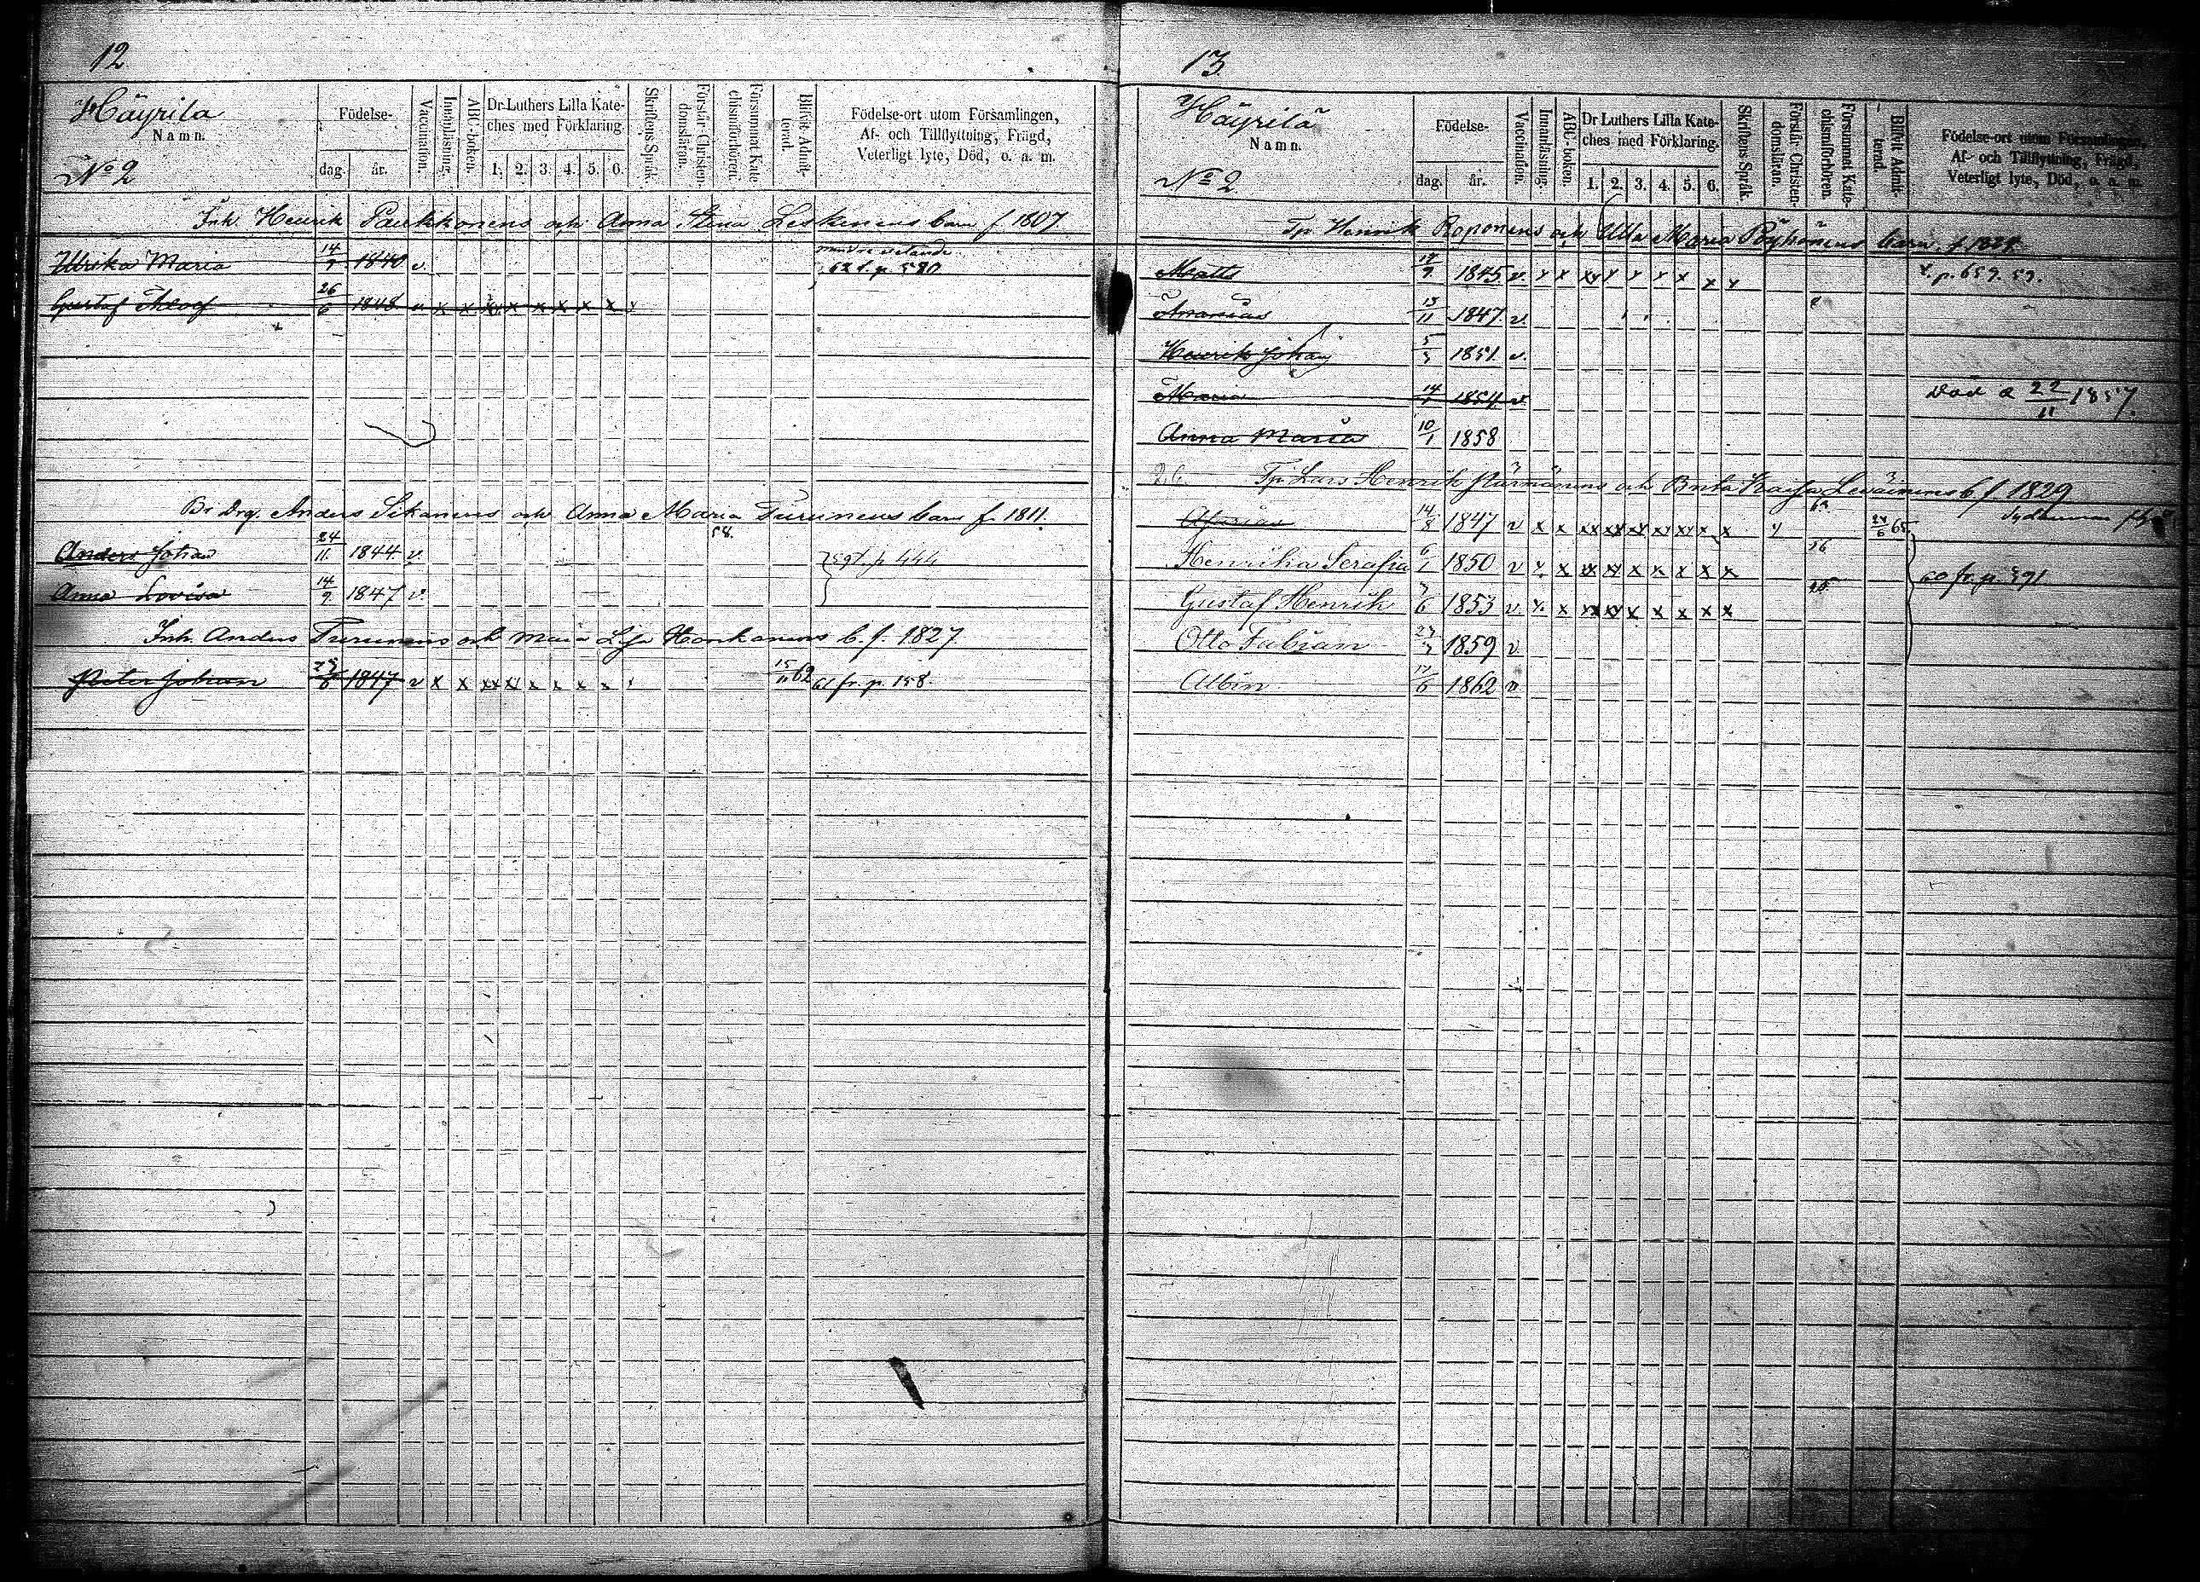 12
Häyrilä
Namn.
No 2
Födelse-
dag. år.
Vaccination.
Innanläsning.
ABC-boken.
Dr Luthers Lilla Kate-
ches med Förklaring.
1. 2. 3. 4. 5. 6.
Skriftens Språk.
Förstår Christen-
domsläran.
Försummat Kate-
chismiförhören.
Blifvit Admit-
terad.
Födelse-ort utom Församlingen,
Af- och Tillflyttning, Frägd,
Veterligt lyte, Död, o. a. m.
Inh. Henrik Paukkonens och Anna Stina Leskinens barn f 1807
Ulrika Maria 14/9 1840 v. 62 f. p. 580
Gustaf Adolf 26/6 1848 v x x xx x x x x x
Anders Sikanens och Anna Maria Turunens barn f. 1811.
58.
Anders Johan 24/11 1844 v.
Anna Lovisa 14/9 1847 v. p 444
Inh. Anders Turunens och Maria Lisa Honkanens b. f. 1827.
Petter Johan 1847 v x x xx xx x x x x 15/11 62 61 fr. p. 158.
13.
Häyrilä
Namn.
No 2
Födelse-
dag. år.
Vaccination.
Innanläsning.
ABC-boken.
Dr Luthers Lilla Kate-
ches med Förklaring.
1. 2. 3. 4. 5. 6.
Skriftens Språk.
Förstår Christen-
domsläran.
Försummat Kate-
chismiförhören.
Blifvit Admit-
terad.
Födelse-ort utom Församlingen,
Af- och Tillflyttning, Frägd,
Veterligt lyte, Död, o. a. m.
Tp Henrik Roponens och Ulla Maria Pöyhönens barn
Matts 1845 v. x x xx x x x x x x p. 659. 59.
Ananias 15/11 1847 v.
Henrik Johan 5/3 1851 v.
Maria 1854 v. Död d 22/11 1857.
Anna Maria 10/1 1858
Tp Lars Henrik och Brita Kaisa b f 1829
14/8 1847 v x x xx xx xx x xx x x 24/6 65
Henrika Serafia 6/1 1850 v x x xx xx x x x x x 60 fr. p. 591
Gustaf Henrik 1853 v x x xx xx x x x x x
Otto Fabian 1859 v
Albin 1862 v